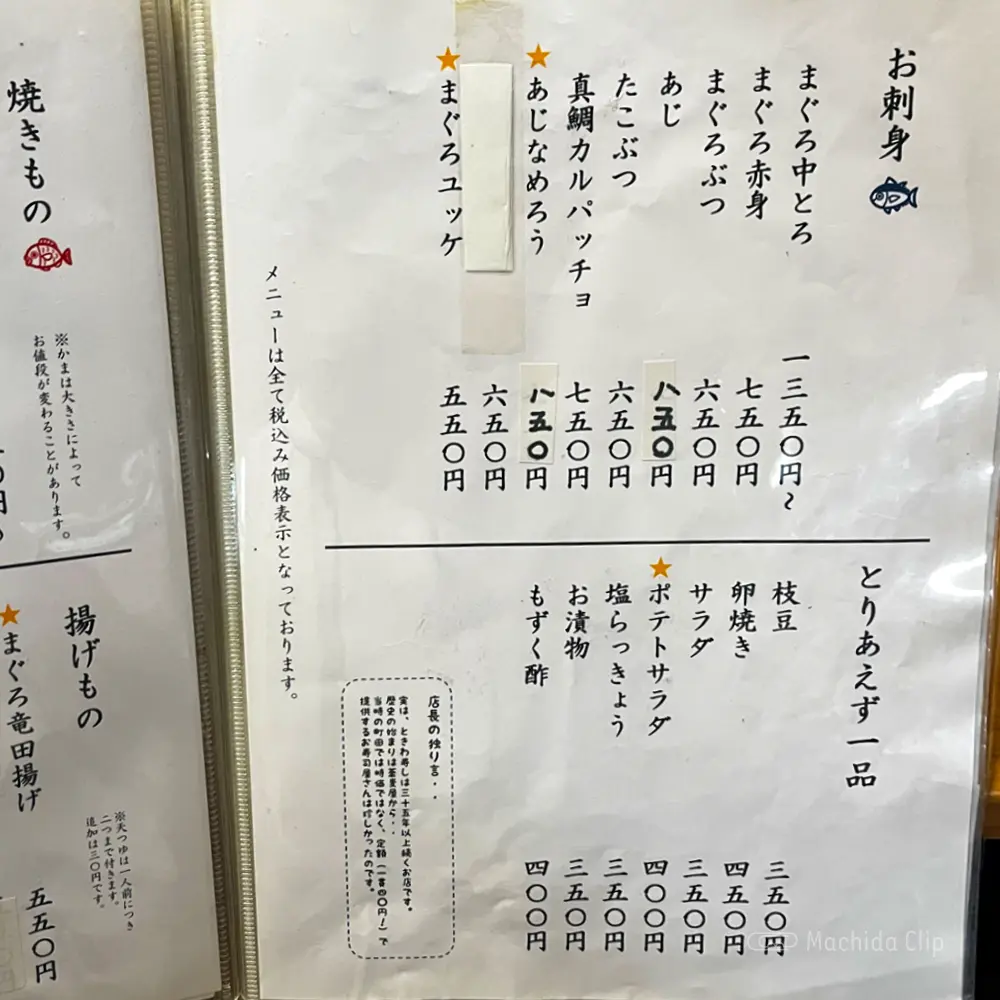 お刺身
まぐろ中とろ 一三五〇円～
まぐろ赤身 七五〇円
まぐろぶつ 六五〇円
あじ 八五〇円
たこぶつ 六五〇円
真鯛カルパッチョ 七五〇円
★あじなめろう 八五〇円
六五〇円
★まぐろユッケ 五五〇円
メニューは全て税込み価格表示となっております。
とりあえず一品
枝豆 三五〇円
卵焼き 四五〇円
サラダ 三五〇円
★ポテトサラダ 四〇〇円
塩らっきょう 三五〇円
お漬物 三五〇円
もずく酢 四〇〇円
店長の独り言・・
実は、ときわ寿しは三十五年以上続くお店です。
歴史の始まりは蕎麦屋から・・
当時の町田では時価ではなく、定額（一貫四〇円！）で
提供するお寿司屋さんは珍しかったのです。
焼きもの
※かまは大きさによって
お値段が変わることがあります。
揚げもの
※天つゆは一人前につき
二つまで付きます。
追加は三〇円です。
★まぐろ竜田揚げ 五五〇円
Machida Clip